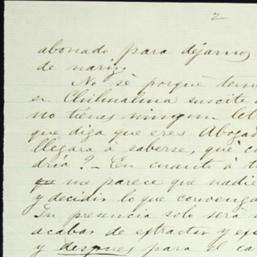 2
abonado para dejarnos
de nariz.
No sé porqué tem
en Chihuahua suscite
no tienes ningun
que diga que eres Abogad
llegara á saberse, qué
dria? - En cuanto á t
que me parece que nadie
y decidir lo que convenga
Tu presencia solo será
acabar de extractar y
y despues para el ca